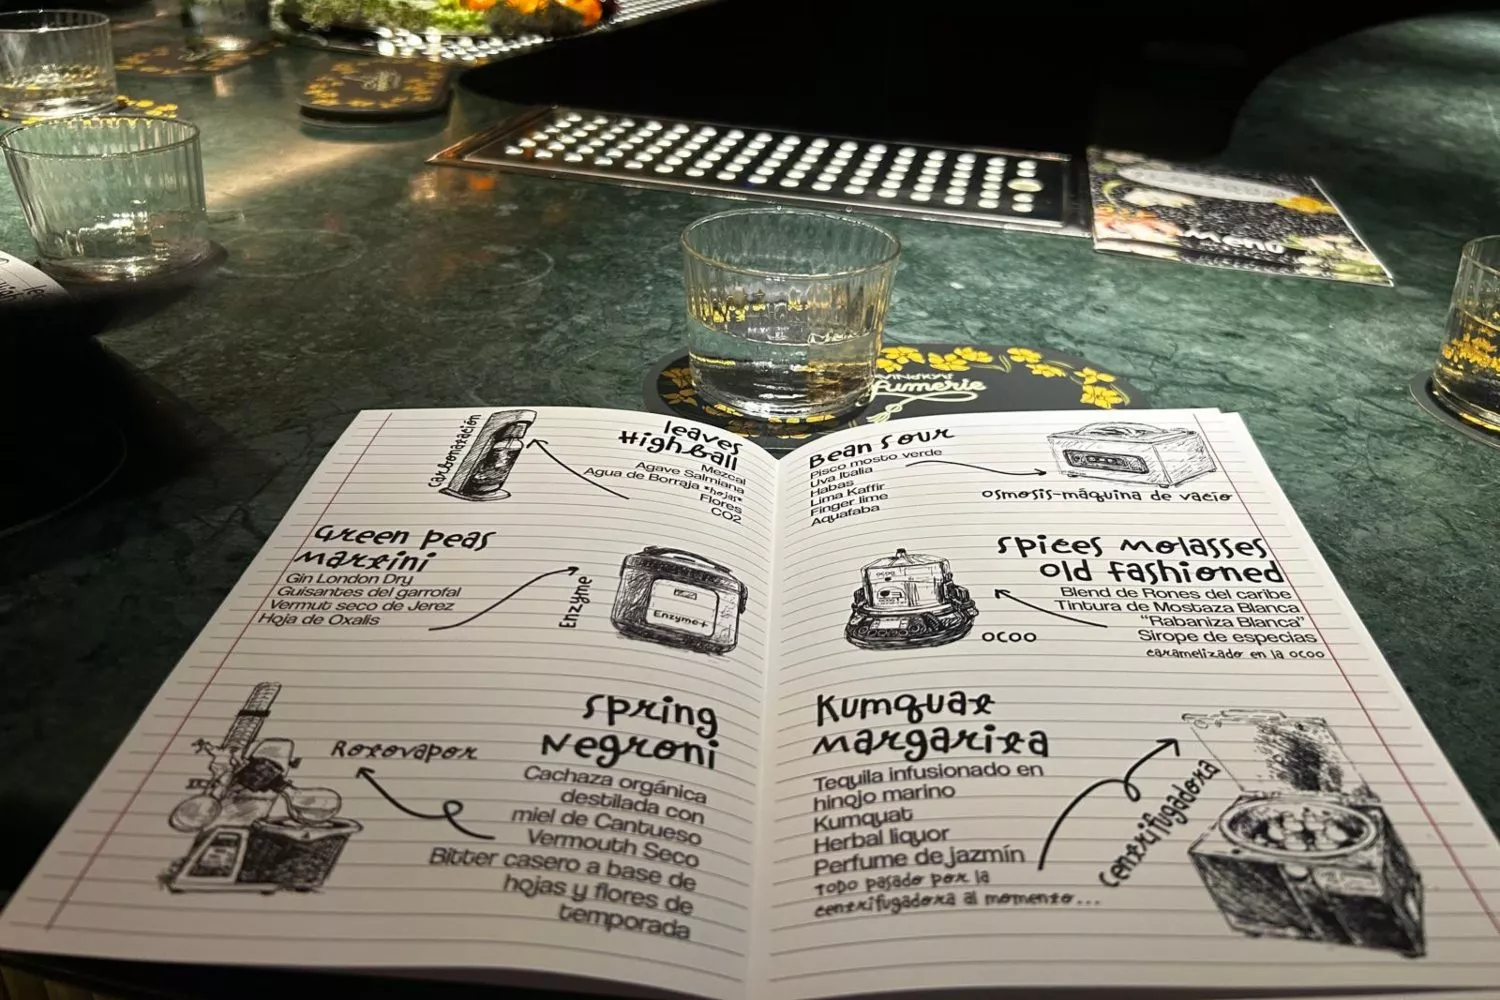 menu
fumerie
Carbonatación
leaves
HighBall
Mezcal
Agave Salmiana
Agua de Borraja *hojas*
Flores
CO2
Green peas
martini
Gin London Dry
Guisantes del garrofal
Vermut seco de Jerez
Hoja de Oxalis
Enzyme
Enzyme+
Spring
Negroni
Rotovapor
Cachaza orgánica
destilada con
miel de Cantueso
Vermouth Seco
Bitter casero a base de
hojas y flores de
temporada
Bean Sour
Pisco mosto verde
Uva Italia
Habas
Lima Kaffir
Finger lime
Aquafaba
osmosis-máquina de vacío
Spices Molasses
old fashioned
Blend de Rones del caribe
Tintura de Mostaza Blanca
"Rabaniza Blanca"
Sirope de especias
caramelizado en la ocoo
ocoo
ocoo
Kumquat
margarita
Tequila infusionado en
hinojo marino
Kumquat
Herbal liquor
Perfume de jazmín
Todo pasado por la
centrifugadora al momento...
Centrifugadora